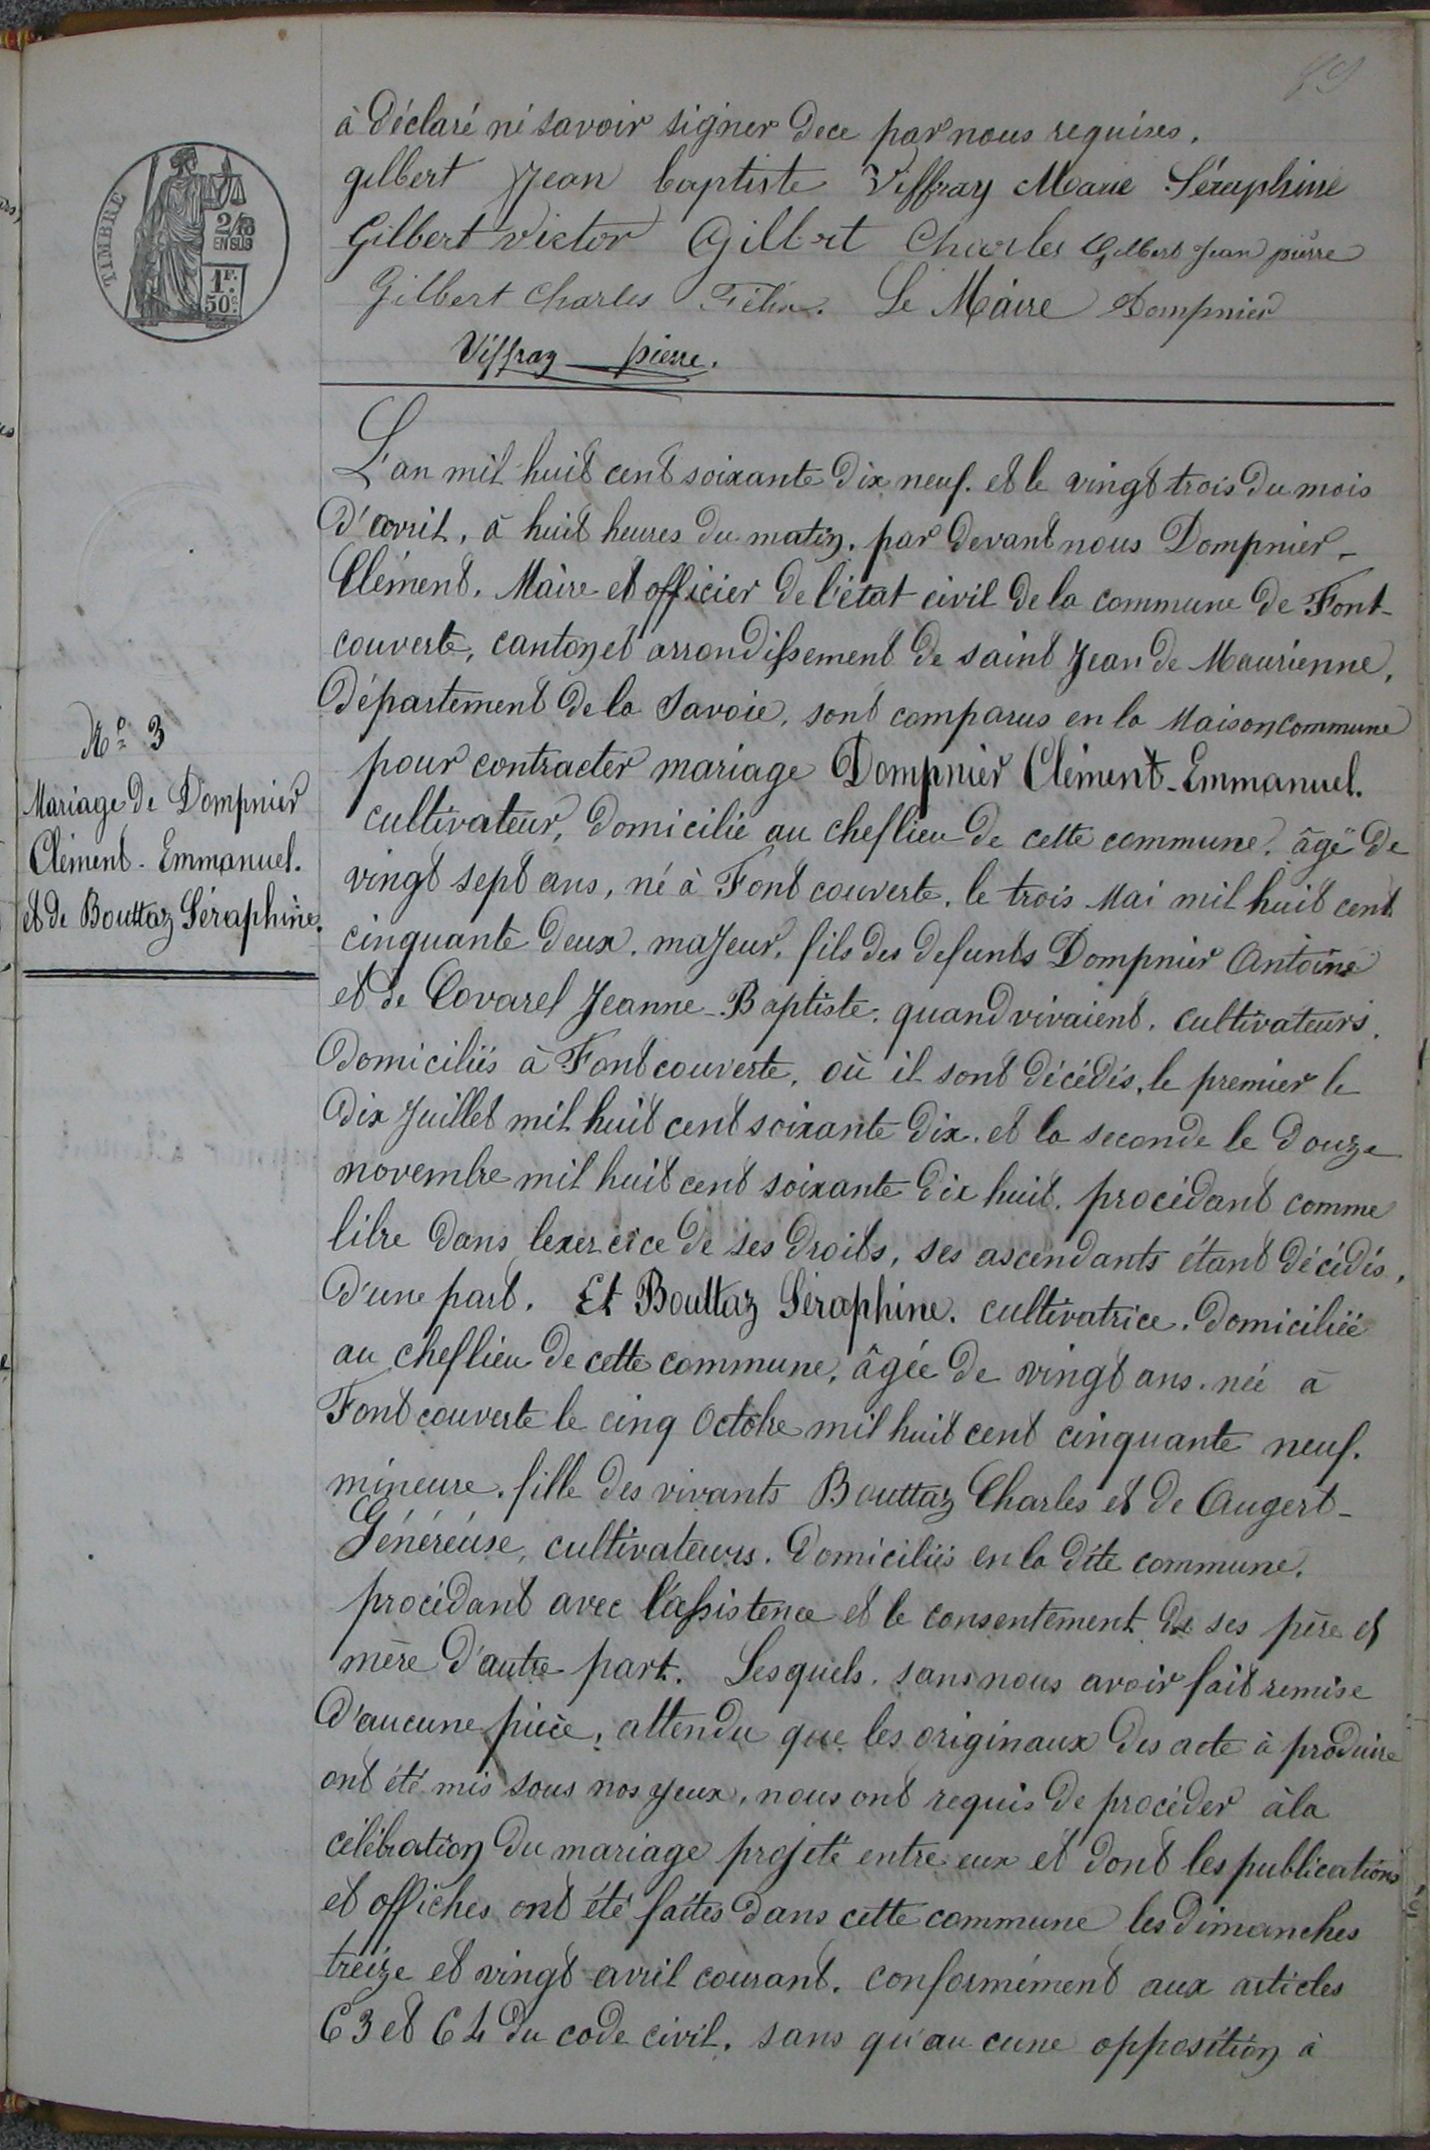 59
à déclaré né savoir signer dece par nous requises.
gilbert Jean baptiste Viffray Marie Séraphine
Gilbert victor Gilbert Charles Gilbert Jean pierre
Gilbert Charles Félix. Le Maire Dompnier
Viffray pierre.
TIMBRE
2/10
EN SUS
1F.
50c.
L'an mil huit cent soixante dix neuf. et le vingt trois du mois
d'avril, à huit heures du matin, par devant nous Dompnier-
Clément. Maire et officier de l'état civil de la commune de Font-
couverte, canton et arrondissement de saint Jean de Maurienne,
Département de la Savoie, sont comparus en la Maison commune
pour contracter mariage Dompnier Clément-Emmanuel.
cultivateur, domicilié au cheflieu de cette commune, âgé de
vingt sept ans, né à Font couverte, le trois Mai mil huit cent
cinquante deux. majeur. fils des defunts Dompnier Antoine
et de Covarel Jeanne-Baptiste. quand vivaient. cultivateurs.
Domiciliés à Font couverte, où il sont décédés, le premier le
dix Juillet mil huit cent soixante dix. et la seconde le douze
novembre mil huit cent soixante dix huit. procédant comme
libre dans lexercice de ses droits, ses ascendants étant décédés,
d'une part. Et Bouttaz Séraphine. cultivatrice. domiciliée
au cheflieu de cette commune, âgée de vingt ans. née à
Font couverte le cinq Octobre mil huit cent cinquante neuf.
mineure. fille des vivants Bouttaz Charles et de Augert-
Généreuse, cultivateurs. domiciliés en la dite commune.
procédant avec l'assistence et le consentement de ses père et
mère d'autre part. Lesquels. sans nous avoir fait remise
d'aucune pièce, attendu que les originaux des acte à produire
ont été mis sous nos yeux, nous ont requis de procéder à la
célébration du mariage projeté entre eux et dont les publications
et affiches ont été faites dans cette commune les dimanches
treize et vingt avril courant. conformément aux articles
63 et 64 du code civil. sans qu'au cune opposition à
No 3
Mariage de Dompnier
Clément-Emmanuel.
et de Bouttaz Séraphine.